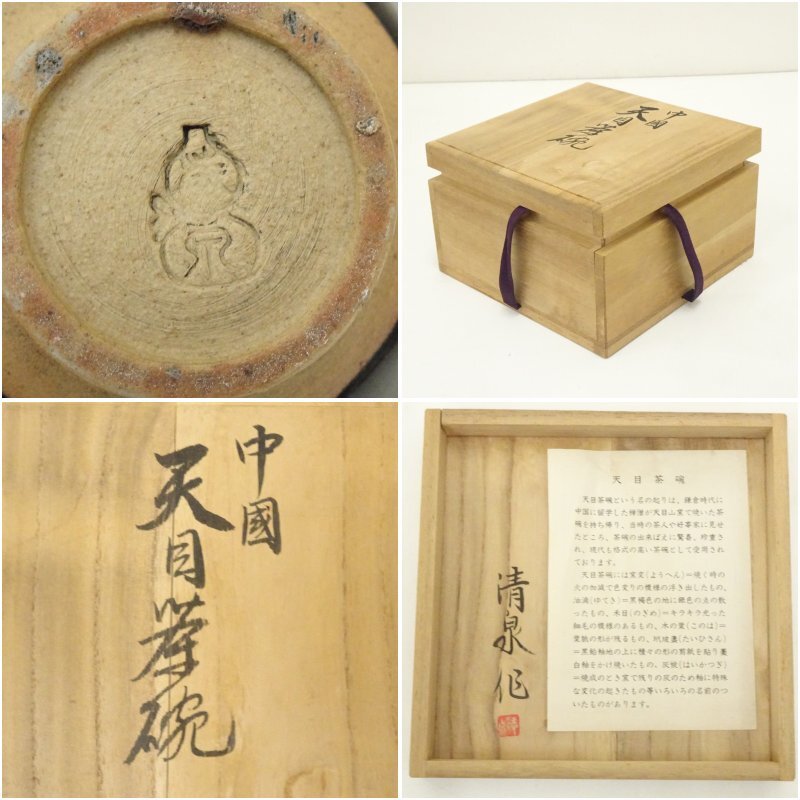 中國
天目茶碗
中國
天目茶碗
天目茶碗
天目茶碗という名の起りは、鎌倉時代に
中国に留学した禅僧が天目山窯で焼いた茶
碗を持ち帰り、当時の茶人や好事家に見せ
たところ、茶碗の出来ばえに驚喜、珍重さ
れ、現代も格式の高い茶碗として使用され
ております。
天目茶碗には窯変(ようへん)=焼く時の
火の加減で色変りの模様の浮き出したもの、
油滴(ゆてき)=黒褐色の地に銀色の点の散
ったもの、禾目(のぎめ)=キラキラ光った
細毛の模様のあるもの、木の葉(このは)=
葉脈の形が残るもの、玳玻盞(たいひさん)
=黒飴釉地の上に種々の形の剪紙を貼り藁
白釉をかけ焼いたもの、灰被(はいかつぎ)
=焼成のとき窯で残りの灰のため釉に特殊
な変化の起きたもの等いろいろの名前のつ
いたものがあります。
清泉作